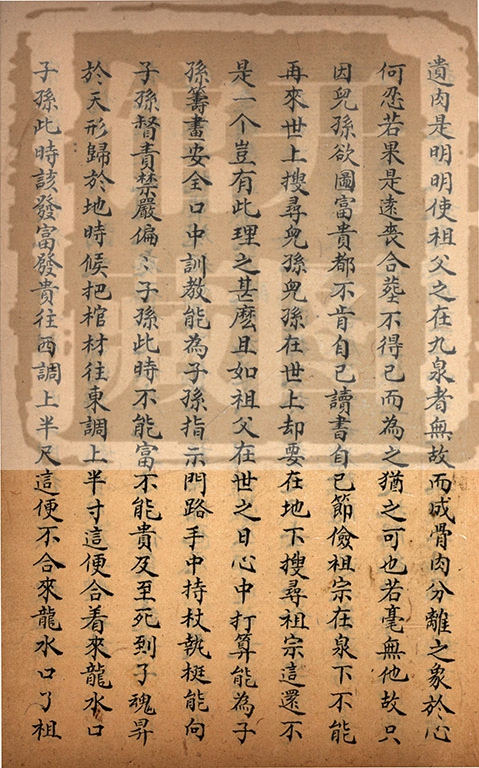 遺肉是明明使祖父之在九泉者無故而成骨肉分離之象於心
何忍若果是遠喪合塟不得已而為之猶之可也若毫無他故只
因兒孫欲圖富貴都不肯自己讀書自己節儉祖宗在泉下不能
再來世上搜尋兒孫兒孫在世上却要在地下搜尋祖宗這還不
是一个豈有此理之甚麽且如祖父在世之日心中打算能為子
孫籌畫安全口中訓教能為子孫指示門路手中持杖執梃能向
子孫督責禁嚴偏〻子孫此時不能富不能貴及至死到了魂昇
於天形歸於地時候把棺材往東調上半寸這便合着來龍水口
子孫此時該發富發貴往西調上半尺這便不合來龍水口了祖